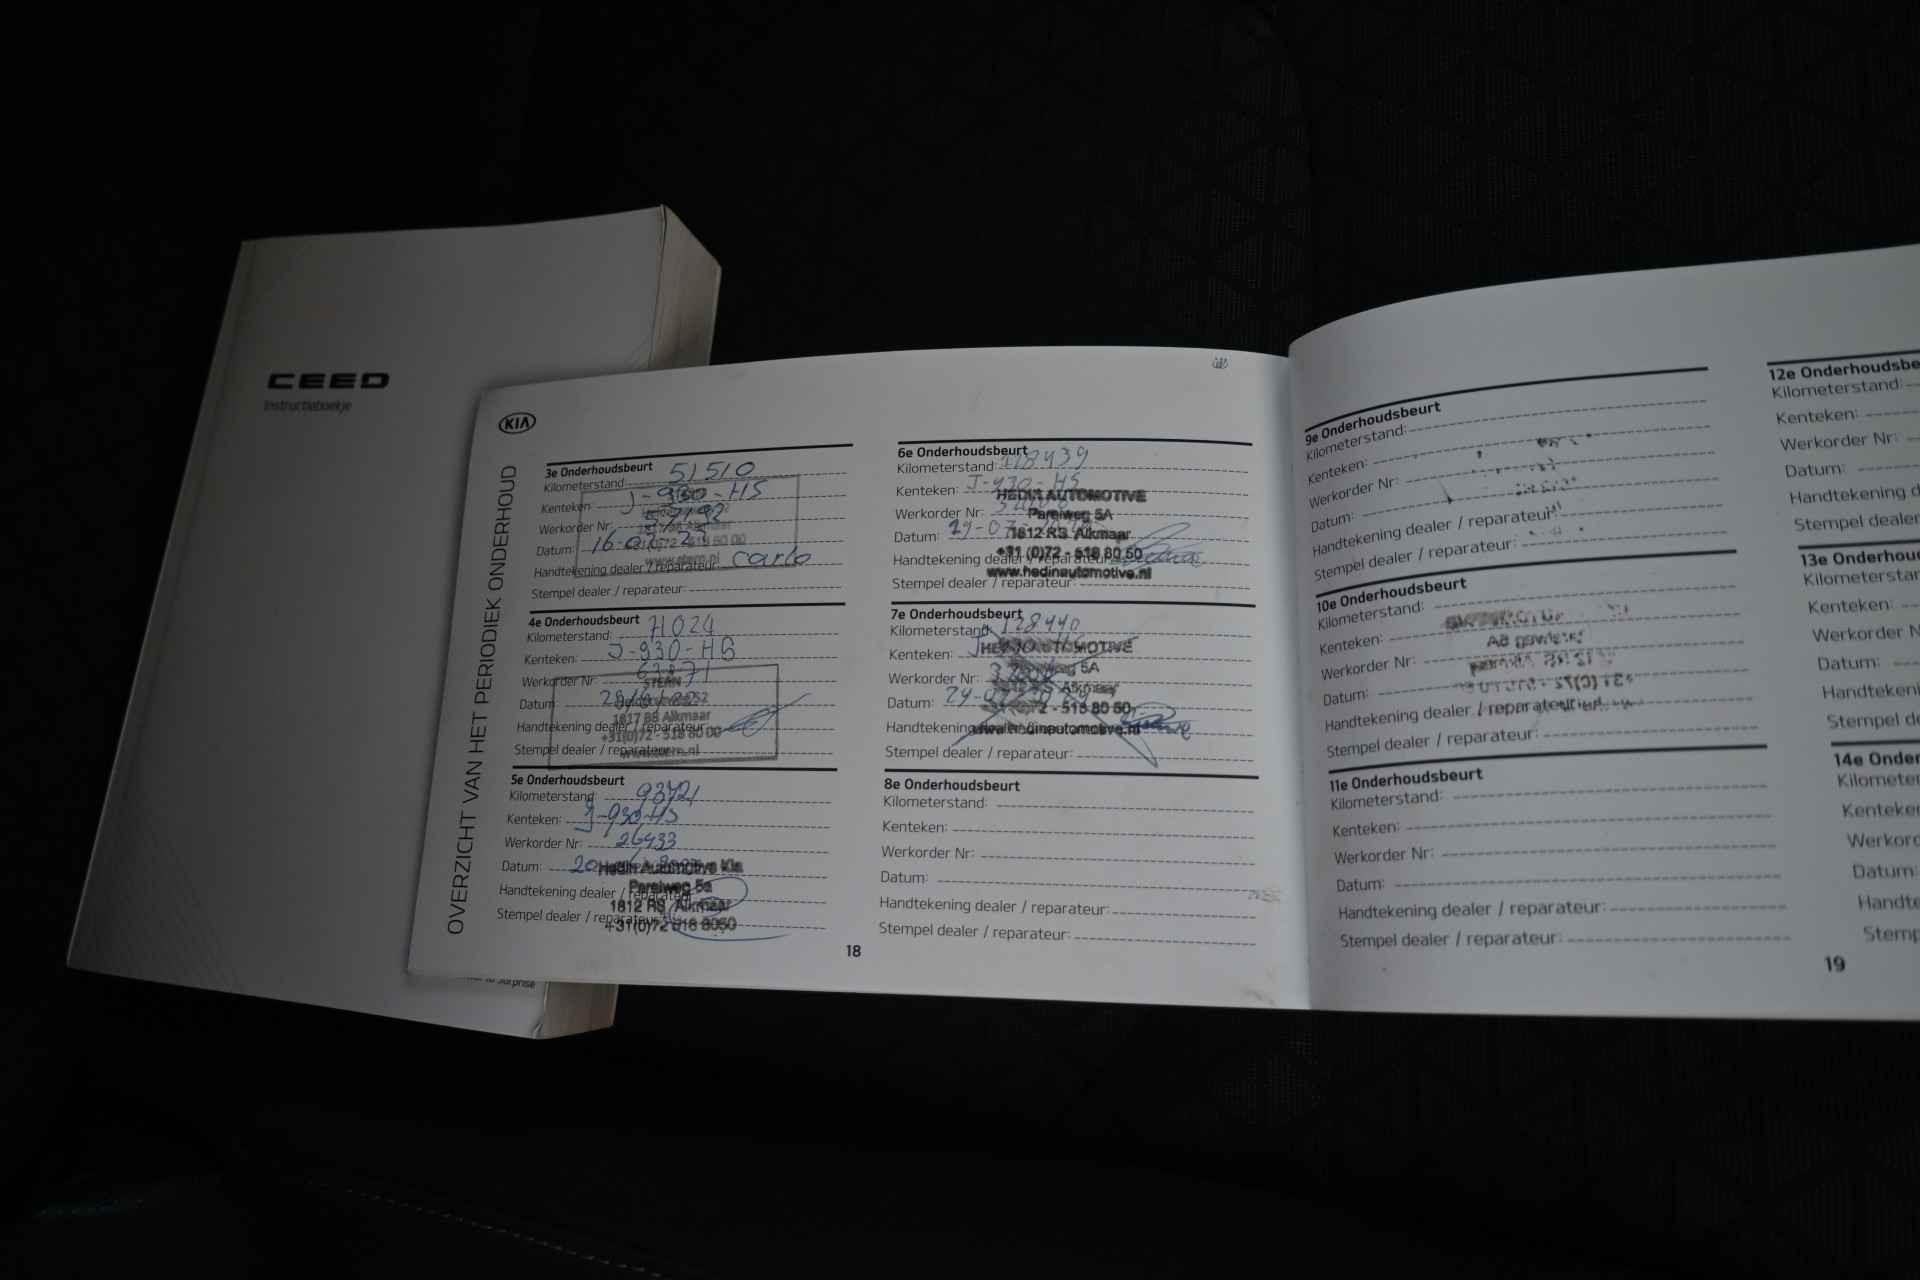 CEED
Instructieboekje
to Surprise
KIA
OVERZICHT VAN HET PERIODIEK ONDERHOUD
3e Onderhoudsbeurt
Kilometerstand: 51510
Kenteken: J-930-HS
Werkorder Nr:
Datum: 16-03-21
Handtekening dealer / reparateur: Carlo
Stempel dealer / reparateur:
4e Onderhoudsbeurt
Kilometerstand: 71024
Kenteken: J-930-HS
Werkorder Nr: 62871
STERN
Datum:
1817 BS Alkmaar
Handtekening dealer / reparateur:
+31(0)72 - 518 80 00
Stempel dealer / reparateur:
www.stern.nl
5e Onderhoudsbeurt
Kilometerstand: 93721
Kenteken: J-930-HS
Werkorder Nr: 26433
Datum: 20
Hedin Automotive Kia
Handtekening dealer / reparateur:
Parelweg 5a
1812 RS Alkmaar
Stempel dealer / reparateur:
+31(0)72 518 8050
6e Onderhoudsbeurt
Kilometerstand: 118439
Kenteken: J-930-HS
HEDIN AUTOMOTIVE
Werkorder Nr:
Parelweg 5A
Datum: 29-07-
1812 RS Alkmaar
+31 (0)72 - 518 80 50
Handtekening dealer / reparateur:
www.hedinautomotive.nl
Stempel dealer / reparateur:
7e Onderhoudsbeurt
Kilometerstand: 128440
Kenteken:
HEDIN AUTOMOTIVE
Parelweg 5A
Werkorder Nr:
1812 RS Alkmaar
Datum:
+31 (0)72 - 518 80 50
Handtekening
www.hedinautomotive.nl
Stempel dealer / reparateur:
8e Onderhoudsbeurt
Kilometerstand:
Kenteken:
Werkorder Nr:
Datum:
Handtekening dealer / reparateur:
Stempel dealer / reparateur:
18
9e Onderhoudsbeurt
Kilometerstand:
Kenteken:
Werkorder Nr:
Datum:
Handtekening dealer / reparateur:
Stempel dealer / reparateur:
10e Onderhoudsbeurt
Kilometerstand:
Kenteken:
Werkorder Nr:
Datum:
Handtekening dealer / reparateur:
Stempel dealer / reparateur:
11e Onderhoudsbeurt
Kilometerstand:
Kenteken:
Werkorder Nr:
Datum:
Handtekening dealer / reparateur:
Stempel dealer / reparateur:
12e Onderhoudsbe
Kilometerstand:
Kenteken:
Werkorder Nr:
Datum:
Handtekening d
Stempel dealer
13e Onderhoud
Kilometerstan
Kenteken:
Werkorder N
Datum:
Handteken
Stempel de
14e Onder
Kilometer
Kenteken
Werkord
Datum:
Handte
Stemp
19